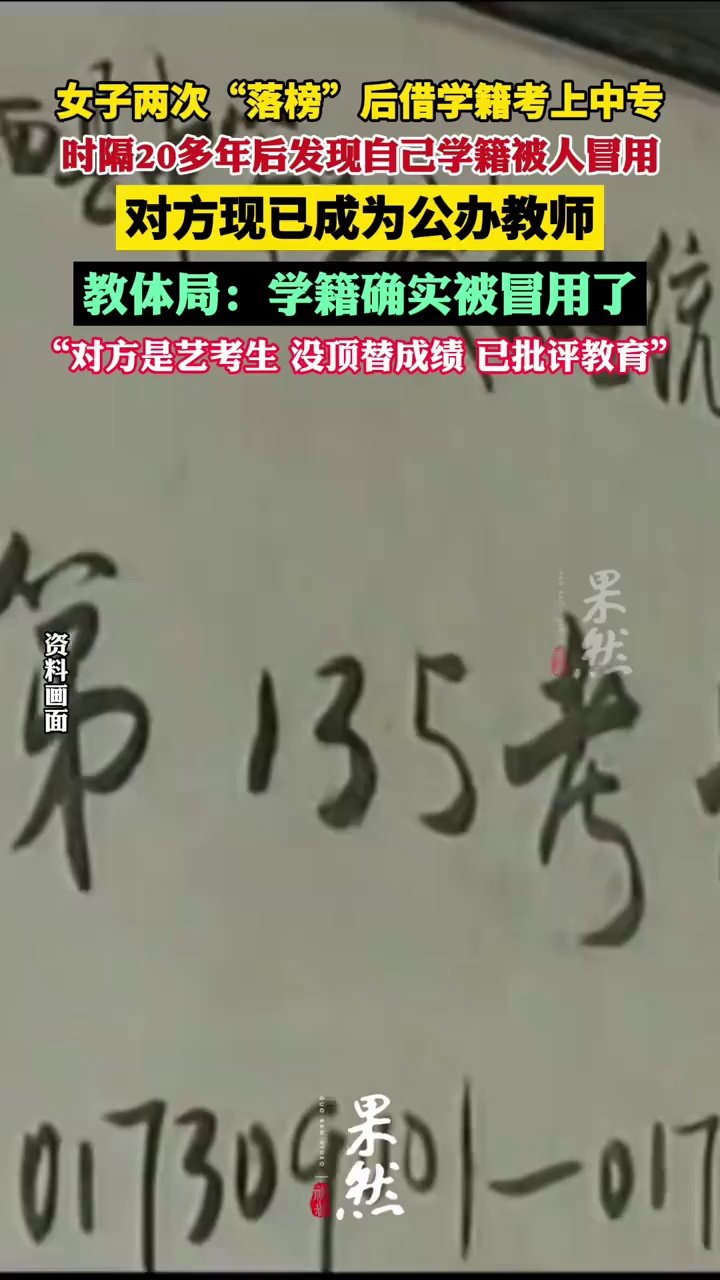 女子两次“落榜”后借学籍考上中专
时隔20多年后发现自己学籍被人冒用
对方现已成为公办教师
教体局：学籍确实被冒用了
“对方是艺考生 没顶替成绩 已批评教育”
果然
资料画面
第135考
01730901—017
果然